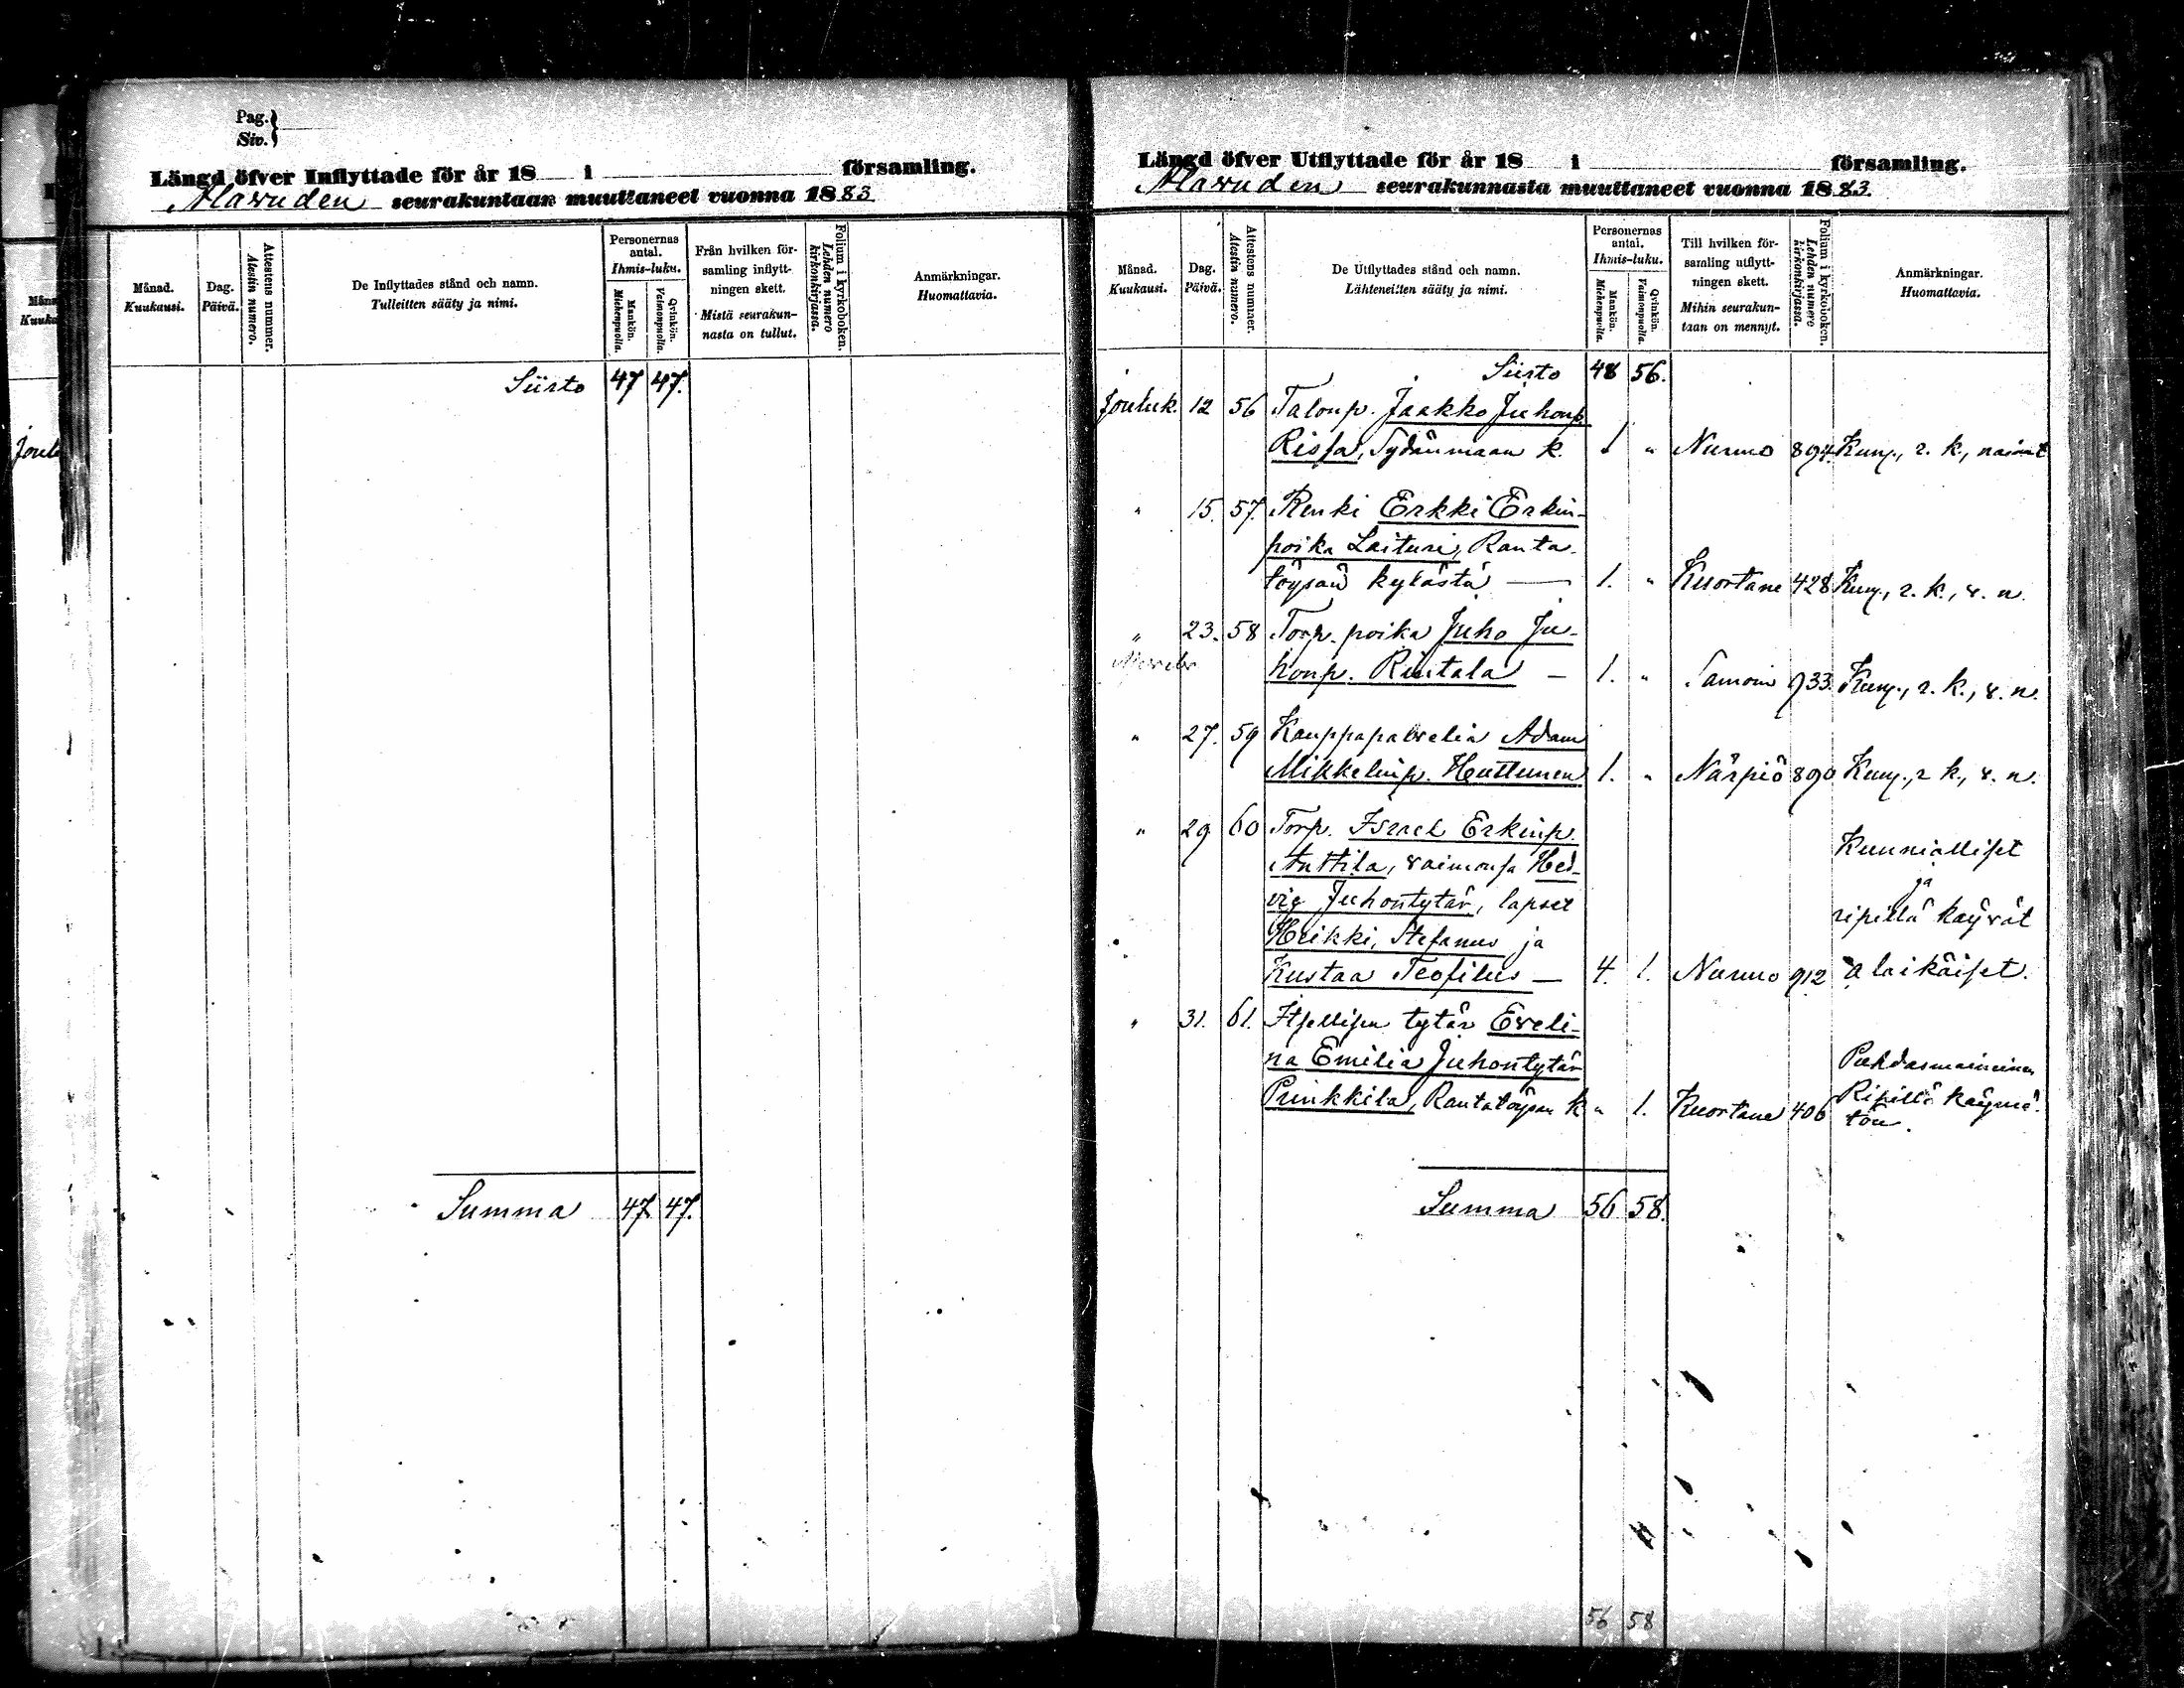 Pag.
Siv.
Längd öfver Inflyttade för år 18 i församling.
Alavuden seurakuntaan muuttaneet vuonna 1883
Månad. Kuukausi.
Dag. Päivä.
Attestens nummer. Atestin numero.
De Inflyttades stånd och namn. Tulleitten sääty ja nimi.
Personernas antal. Ihmis-luku.
Mankön. Miehenpuolia.
Qvinkön. Vaimonpuolia.
Från hvilken församling inflyttningen skett. Mistä seurakunnasta on tullut.
Folium i kyrkoboken. Lehden numero kirkonkirjassa.
Anmärkningar. Huomattavia.
Siirto 47 47.
Summa 47 47.
Längd öfver Utflyttade för år 18 i församling.
Alavuden seurakunnasta muuttaneet vuonna 1883.
Månad. Kuukausi.
Dag. Päivä.
Attestens nummer. Atestin numero.
De Utflyttades stånd och namn. Lähteneitten sääty ja nimi.
Personernas antal. Ihmis-luku.
Mankön. Miehenpuolia.
Qvinkön. Vaimonpuolia.
Till hvilken församling utflyttningen skett. Mihin seurakuntaan on mennyt.
Folium i kyrkoboken. Lehden numero kirkonkirjassa.
Anmärkningar. Huomattavia.
Siirto 48 56.
Jouluk. 12 56 Talonp. Jaakko Juhonp.
Rissa, Sydänmaan k. 1 " Nurmo 894. Kunn., r. k., nainut
" 15. 57. Renki Erkki Erkin-
poika Laituri, Ranta-
töysän kylästä — 1. " Kuortane 428 Kunn., r. k., v. n.
" 23. 58 Torp. poika Juho Ju-
honp. Rintala — 1. " Samoin 933. Kunn., r. k., v. n.
" 27. 59 Kauppapalvelia Adam
Mikkelinp. Huttunen 1. " Närpiö 890 Kunn., r. k., v. n.
" 29 60 Torp. Israel Erkinp.
Anttila, vaimonsa Hed-
vig Juhontytär, lapset
Heikki, Stefanus ja
Kustaa Teofilus — 4. 1. Nurmo 912
Kunnialliset
ja
ripillä käyvät
alaikäiset.
" 31. 61. Itsellisen tytär Eveli-
na Emilia Juhontytär
Prinkkilä, Rantatöysän k " 1. Kuortane 406
Puhdasmaineinen
Ripillä käymä-
tön.
Summa 56 58.
56 58